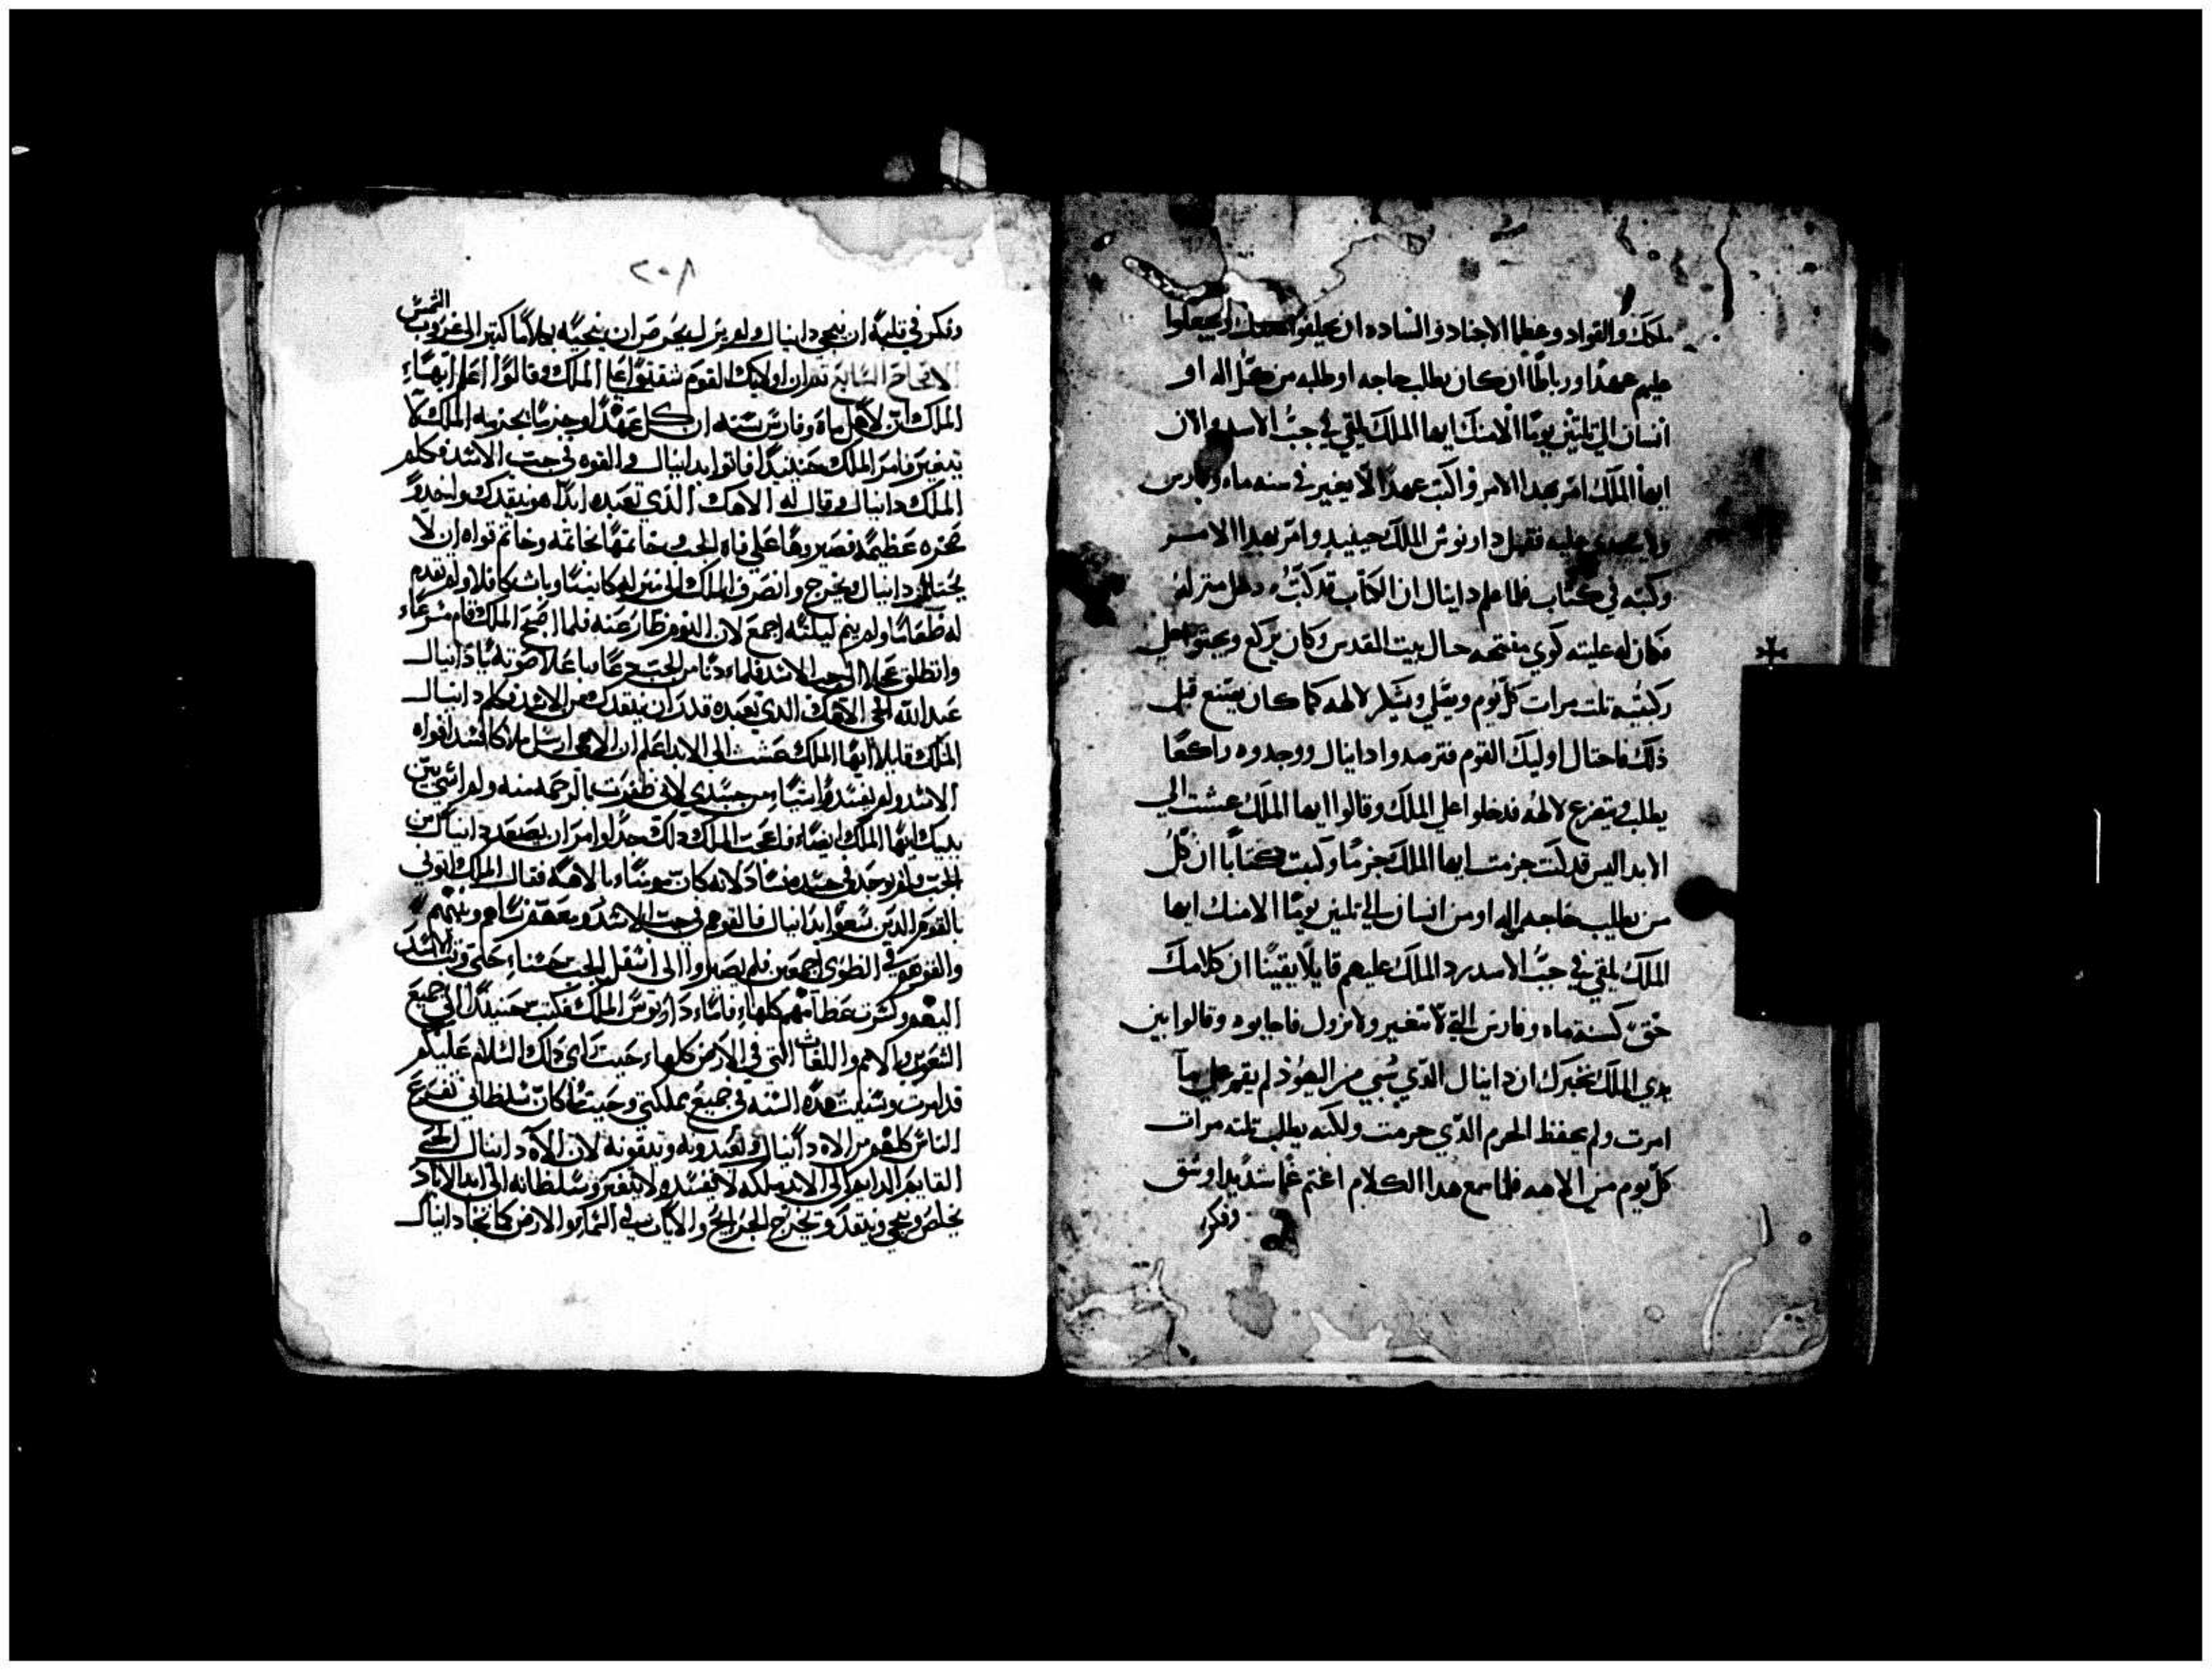 ملكك والقواد وعظما الاجناد والساده ان يحلفوا ويجعلوا
عليهم عهدا ورباطا ان كان يطلب حاجه او طلبه من كل اله او
انسان الى تلثين يوما الا منك ايها الملك يلقي في جب الاسد والان
ايها الملك امر بهدا الامر واكتب عهدا لا يغير في سنه ماه وفارس
عليه فقبل داريوش الملك حينيد وامر بهدا الامر
وكتبه في كتاب فلما علم دانيال ان الكتاب قد كتب دخل منزله
فكان له عليته كوي مفتحه حيال بيت المقدس وكان يركع ويجثو على
ركبتيه تلت مرات كل يوم ويصلي ويشكر لالهه كما كان يصنع قبل
ذلك فاحتال اوليك القوم فترصدوا دانيال ووجدوه راكعا
يطلب ويتضرع لالهه فدخلوا على الملك وقالوا ايها الملك عشت الى
الابد اليس قد كنت جزمت ايها الملك جزما وكتبت كتابا ان كل
من يطلب حاجه من اله او من انسان الى تلثين يوما الا منك ايها
الملك يلقي في جب الاسد رد الملك عليهم قايلا يقينا ان كلامك
حق كسنة ماه وفارس التي لا تتغير ولا تزول فاجابوه وقالوا بين
يدي الملك نخبرك ان دانيال الدي سبي من اليهود لم يقم على ما
امرت ولم يحفظ الجزم الدي جزمت ولكنه يطلب تلته مرات
كل يوم من الاهه فلما سمع هدا الكلام اغتم غما شديدا وشق
وفكر
٢٠٨
وفكر في قلبه ان ينجي دانيال ولم يزل يحرص ان ينجيه بهدا كثير الى غروب الشمس
الاصحاح السابع تم ان اوليك القوم شغبوا على الملك وقالوا اعلم ايها
الملك ان لاهل ماه وفارس سنه ان كل عهد او جزم يجزمه الملك لا
يتغير فامر الملك حينيدا فاتوا بدانيال والقوه في جب الاسد فكلم
الملك دانيال وقال له الاهك الدي تعبده ابدا هو ينقدك واخدو
صخره عظيمه فصيروها على فاه الجب وختمها بخاتمه وخاتم قواده ان لا
يحتال دانيال ويخرج وانصرف الملك الى منزله وبات ولم يقدم
له طعاما ولم ينم ليلته اجمع لان النوم طار عنه فلما اصبح الملك قام مسرعا
وانطلق عجلا الى جب الاسد فلما دنا من الجب دعا باعلا صوته يا دانيال
عبد الله الحي الاهك الدي تعبده قدر ان ينقدك من الاسد فكلم دانيال
الملك قايلا ايها الملك عشت الى الابد اعلم ان الاهي ارسل ملاكا فسد افواه
الاسد ولم يفسدوا شيا من جسدي لاني ظفرت بالرحمه منه ولم اسي بين
يديك ايها الملك ايضا فاعجب الملك دلك جدا وامر ان يصعد دانيال من
الجب ولم يوجد في جسده فساد لانه كان مومنا بالاهه فقال الملك اتوني
بالقوم الدين سعوا بدانيال فالقوهم في جب الاسد ومعهم نساهم وبنيهم
والقوهم في اجمعين فلم يصلوا الى اسفل الجب حتى وتب الاسد
اليهم وكسرت عظامهم كلها فاما داريوش الملك فكتب حينيدا الى جميع
الشعوب والامم واللغات التي في الارض كلها السلام عليكم
قد امرت وسننت هده السنه في جميع مملكتي وحيت ما كان سلطاني يفزع
الناس كلهم من الاه دانيال ويعبدونه ويتقونه لان الاه دانيال الحي
القايم الدايم الى الابد ملكه لا يفسد ولا يتغير وسلطانه الى ابد الاباد
يخلص وينجي وينقد ويخرج الجرايح والايات في السما والارض كما نجا دانيال